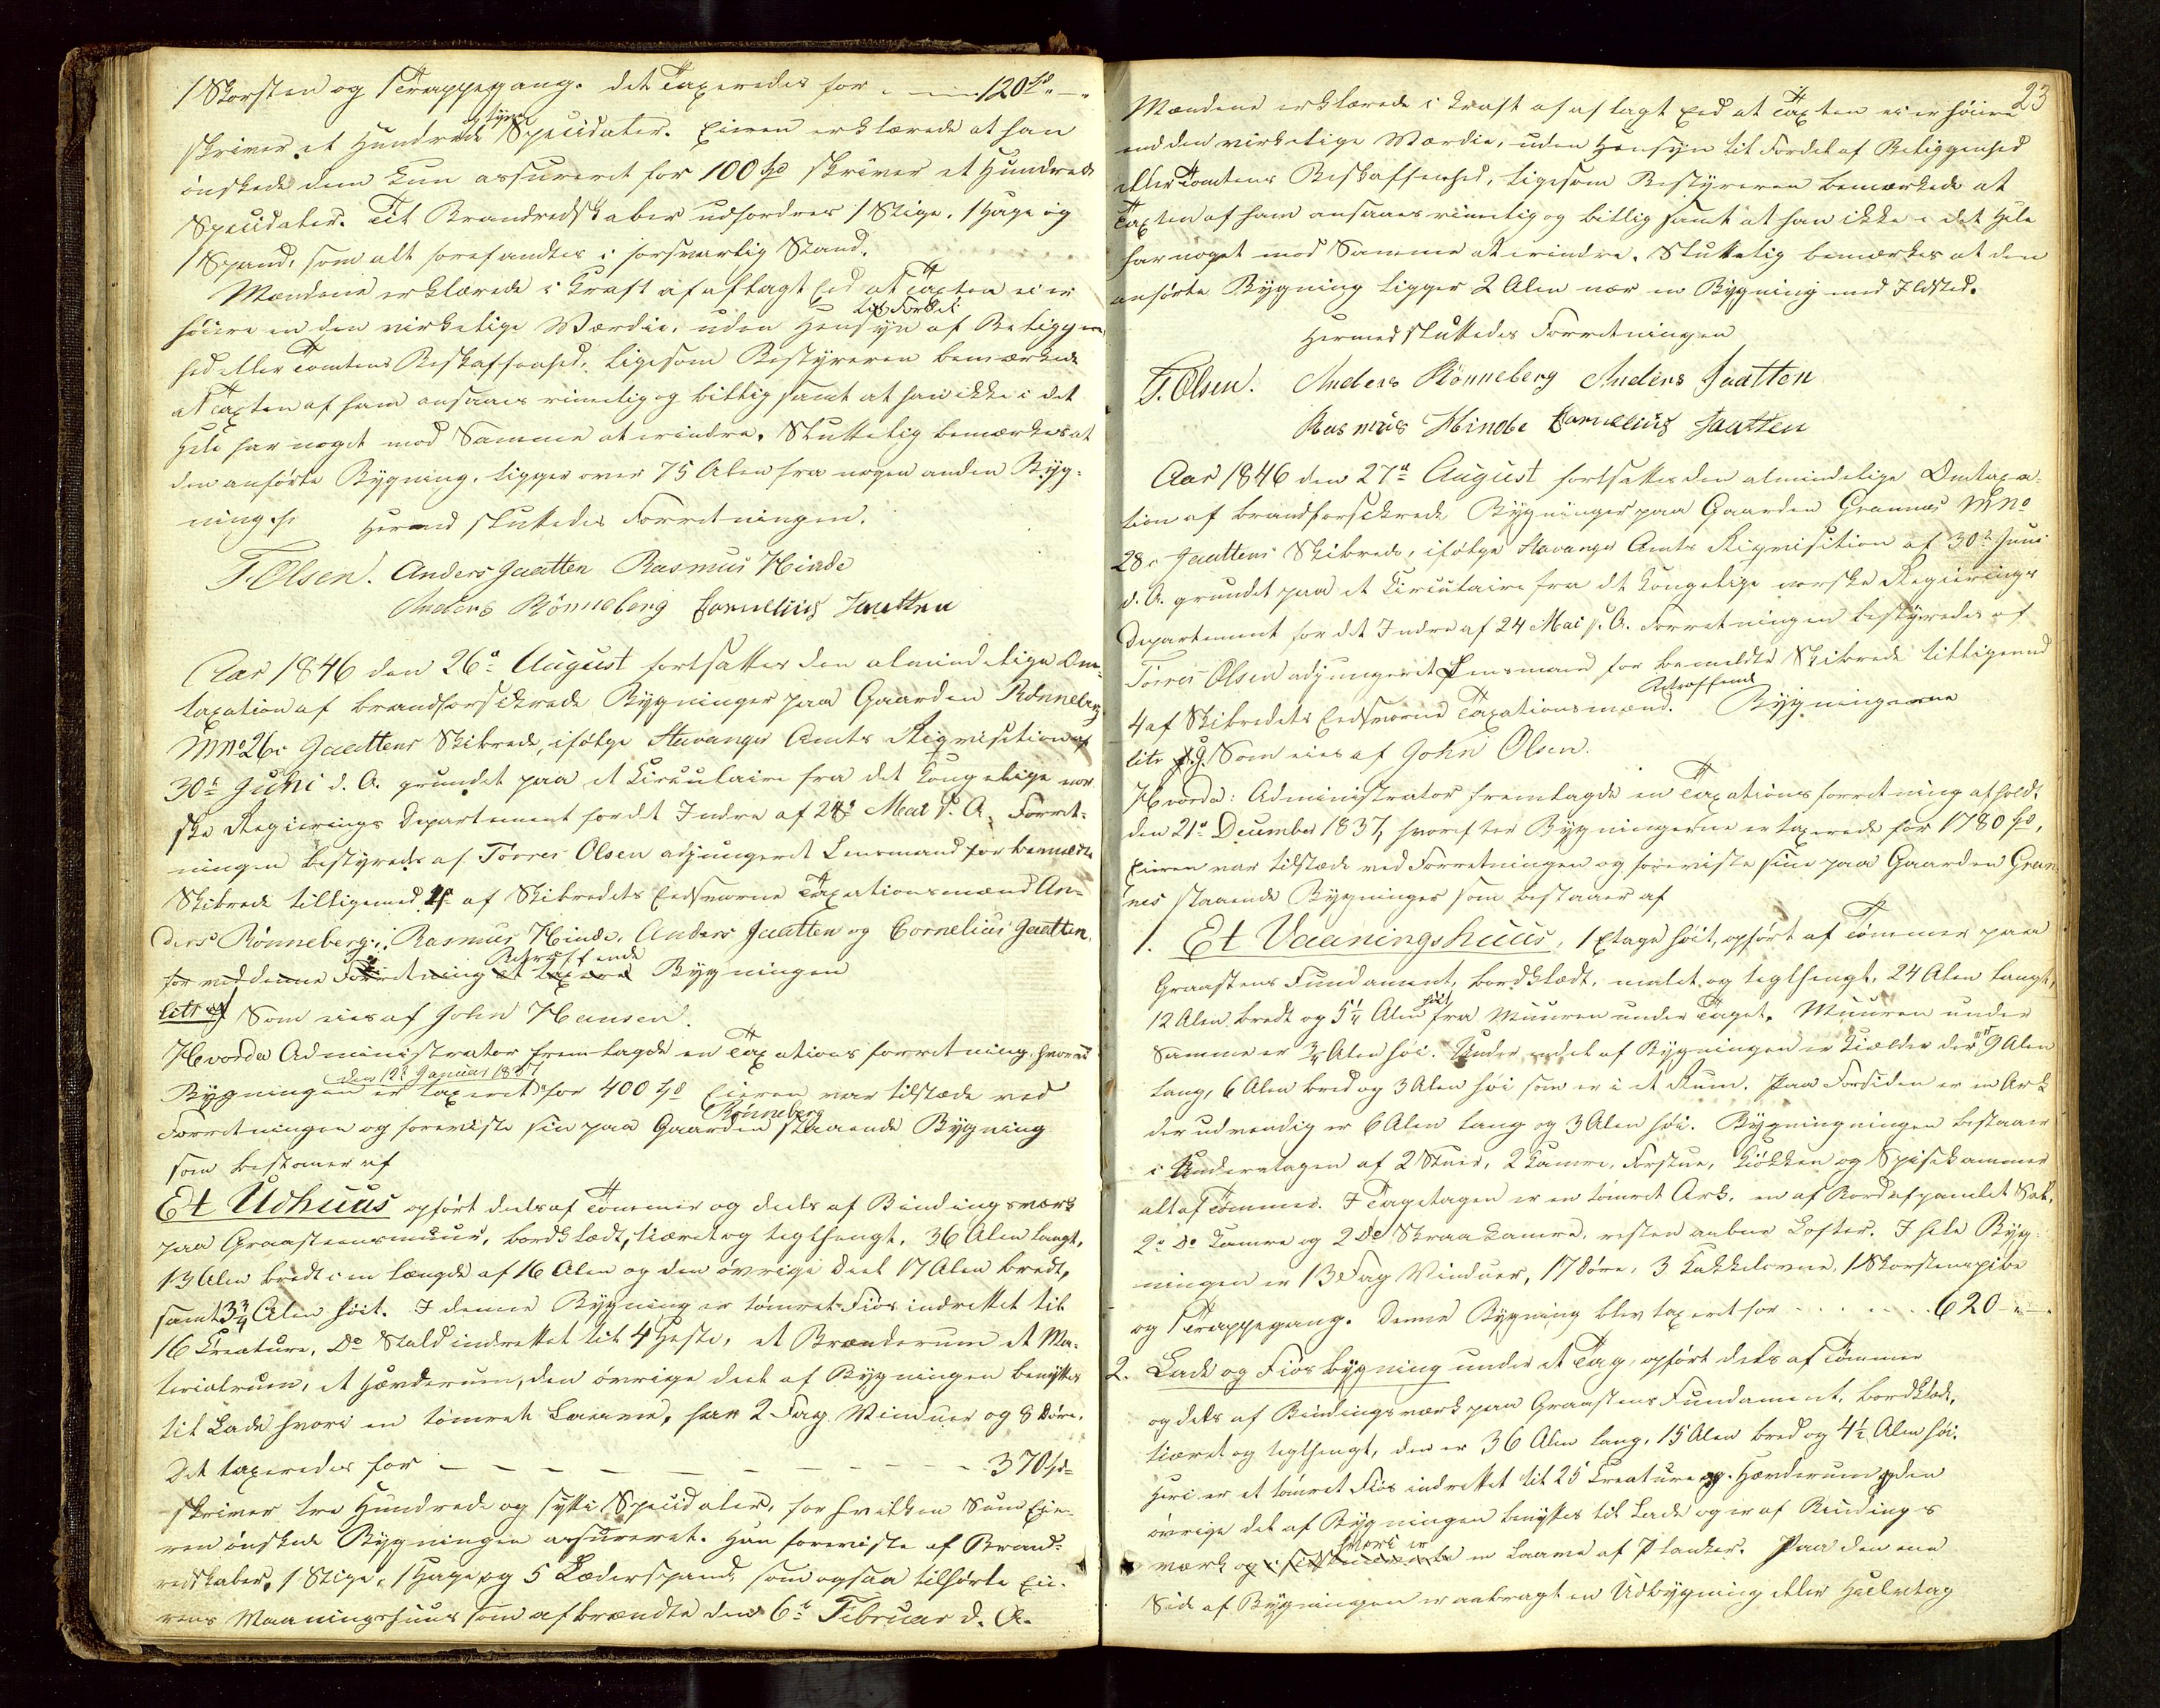 1 Skorsten og 1 Trappegang. det Taxeredes for - - - 120 Spd " - "
skriver et Hundrede og tyve Speciedaler. Eieren erklærede at han
ønskede dem kun assureret for 100 Spd skriver et Hundrede
Speciedaler. Til Brandredskaber udfordres 1 Stige, 1 Hage og
1 Spand, som alt forefandtes i forsvarlig Stand.
Mændene erklærede i Kraft af aflagt Eed at Taxten ei er
høiere en den virkelige Værdie, uden Hensyn til Fordel af Beliggen-
hed eller Tomtens Beskaffenhed, ligesom Bestyreren bemærkede
at Taxten af ham ansaaes rimelig og billig samt at han ikke i det
Hele har noget mod Samme at erindre. Sluttelig bemærkes at
den anførte Bygning, ligger over 75 Alen fra nogen anden Byg-
ning. Hermed sluttedes Forretningen.
T. Olsen. Anders Jaatten Rasmus Hinde
Anders Rönneberg Cornelius Jaatten
Aar 1846 den 26de August fortsattes den almindelige Om-
taxation af brandforsikrede Bygninger paa Gaarden Rönneberg
MNo 26 i Jaattens Skibrede, ifølge Stavanger Amts Reqvisition af
30te Juni d. A. grundet paa et Circulaire fra det Kongelige nor-
ske Regierings Departement for det Indre af 24de Mai s. A. Forret-
ningen bestyredes af Törres Olsen adjungeret Lensmand for bemeldte
Skibrede tilligemed 4 af Skibredets Eedsvorne Taxationsmænd An-
ders Rönneberg, Rasmus Hinde, Anders Jaatten og Cornelius Jaatten.
for ved denne Forretning at taxere Betræffende Bygningen
litr Som eies af John Hansen.
Hvorda Administrator fremlagde en Taxationsforretning, hvorved
Bygningen er taxeret den 12te Januar 1837 for 400 Spd Eieren var tilstæde ved
Forretningen og foreviste sin paa Gaarden Rönneberg staaende Bygning
som bestaaer af
Et Udhuus opført deels af Tømmer og deels af Bindingsværk
paa Graasteensmuur, bordklædt, tiæret og teglhængt, 36 Alen langt,
13 Alen bredt i en Længde af 16 Alen og den øvrige Deel 17 Alen bredt,
samt 3 3/4 Alen høit. I denne Bygning er tømret Fiøs indrettet til
16 Creature, Do Stald indrettet til 4 Heste, et Brænderum et Ma-
terialrum, et Hævderum, den øvrige deel af Bygningen benyttes
til Lade hvori en tømret Laave, har 2 Fag Vinduer og 8 Døre.
Det taxeredes for - - - - - - - - - 370 Spd
skriver tre Hundrede og sytti Speciedaler, for hvilken Sum Eie-
ren ønskede Bygningen assureret. Han foreviste af Brand-
redskaber, 1 Stige, 1 Hage og 5 Læderspand, som ogsaa tilhørte Eie-
rens Vaaningshuus som afbrændte den 6te Februar d. A.
23
Mændene erklærede i Kraft af aflagt Eed at Taxten ei er høiere
end den virkelige Værdie, uden Hensyn til Fordel af Beliggenhed
eller Tomtens Beskaffenhed, ligesom Bestyreren bemærkede at
Taxten af ham ansaaes rimelig og billig samt at han ikke i det Hele
har noget mod Samme at erindre. Sluttelig bemærkes at den
anførte Bygning ligger 2 Alen nær en Bygning med Ildsted.
Hermed sluttedes Forretningen
T. Olsen. Anders Rönneberg Anders Jaatten
Rasmus Hinde Cornelius Jaatten
Aar 1846 den 27de August fortsattes den almindelige Omtaxa-
tion af brandforsikrede Bygninger paa Gaarden Grannes MNo
28 i Jaattens Skibrede, ifølge Stavanger Amts Reqvisition af 30te Juni
d. A. grundet paa et Circulaire fra det Kongelige norske Regierings
Departement for det Indre af 24 Mai s. A. Forretningen bestyredes af
Törres Olsen adjungeret Lensmand for bemeldte Skibrede tilligemed
4 af Skibredets Eedsvorne Taxationsmænd. Betræffende Bygningerne
litr Som eies af John Olsen.
Hvorda: Administrator fremlagde en Taxationsforretning afholdt
den 21de December 1837, hvorefter Bygningerne er taxerede for 1780 Spd,
Eieren var tilstæde ved Forretningen og foreviste sine paa Gaarden Gran-
nes staaende Bygninger som bestaaer af
1. Et Vaaningshuus, 1 Etage høit, opført af Tømmer paa
Graasteens Fundament, bordklædt, malet og teglhængt, 24 Alen langt,
12 Alen bredt og 5 1/4 Alen høit fra Muuren under Taget. Muuren under
Samme er 3/4 Alen høi. Under endeel af Bygningen er Kielder der er 9 Alen
lang, 6 Alen bred og 3 Alen høi som er i et Rum. Paa Forsiden er en Ark
der udvendig er 6 Alen lang og 3 Alen høi. Bygningningen bestaaer
i Underetagen af 2 Stuer, 2 Kamre, Forstue, Kiøkken og Spisekammer
alt af Tømmer. I Tagetagen er en tømret Ark, en af Bord afpanelet Sal,
2de Do Kamre og 2 Do Skraakamre, resten aabne Lofter. I hele Byg-
ningen er 13 Fag Vinduer, 17 Døre, 3 Kakkelovne, 1 Skorsteenspibe
og 1 Trappegang. Denne Bygning blev taxeret for - - - - 620 - " -
2. Lade og Fiøs bygning under et Tag, opført deels af Tømmer
og deels af Bindingsværk paa Graasteens Fundament, bordklædt,
tiæret og teglhængt, den er 36 Alen lang, 15 Alen bred og 4 1/2 Alen høi.
Heri er et tømret Fiøs indrettet til 25 Creature og Hævderum og den
øvrige del af Bygningen benyttes til Lade og er af Bindings
værk hvori er en Laave af Planker. Paa den ene
Side af Bygningen er anbragt en Udbygning eller Halvtag